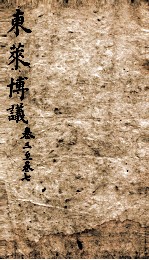 東萊博議 卷三至卷七